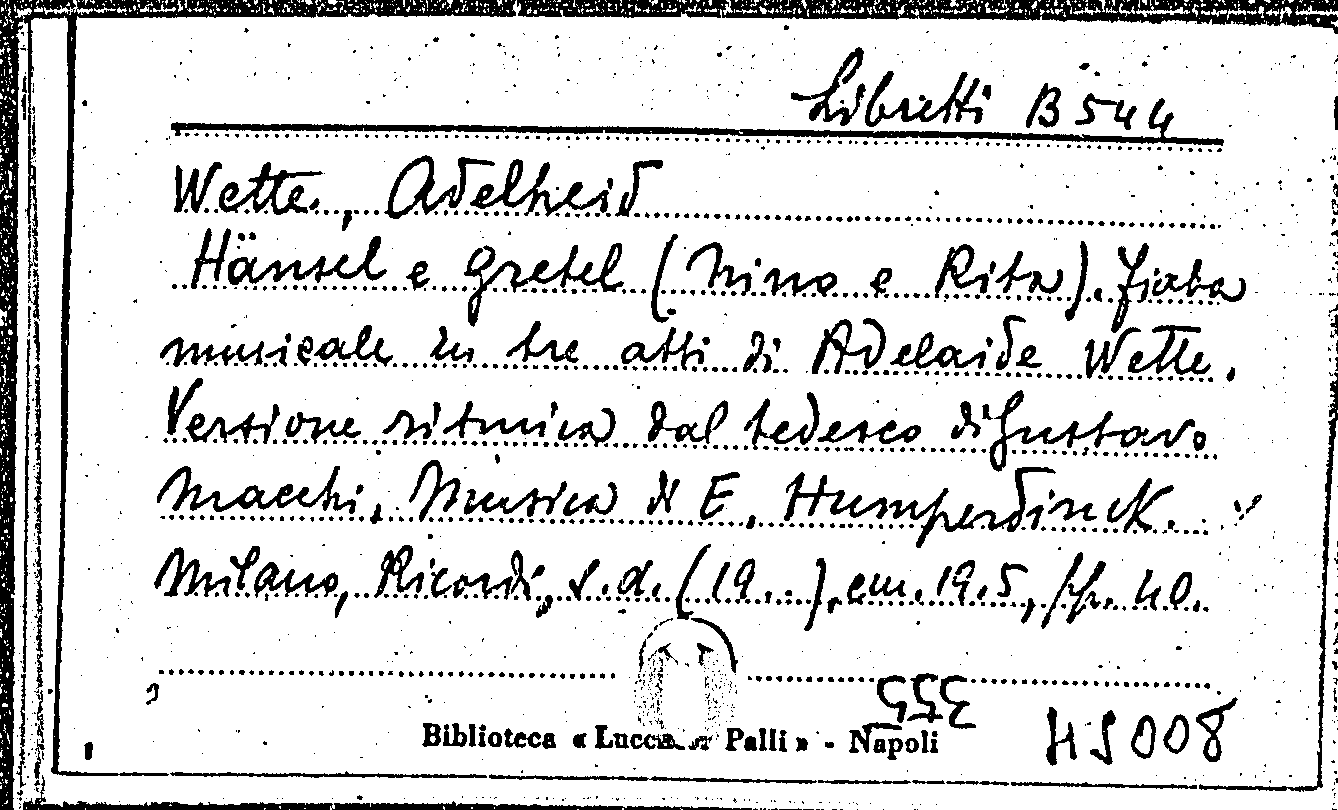 Libretti B 544
Wette, Adelheid
Hänsel e Gretel (Nino e Rita). Fiaba
musicale in tre atti di Adelaide Wette.
Versione ritmica dal tedesco di Gustavo
Macchi. Musica di E. Humperdinck.
Milano, Ricordi, s.d. (19..), cm. 19.5, pp. 40.
355
Biblioteca « Lucchesi Palli » - Napoli